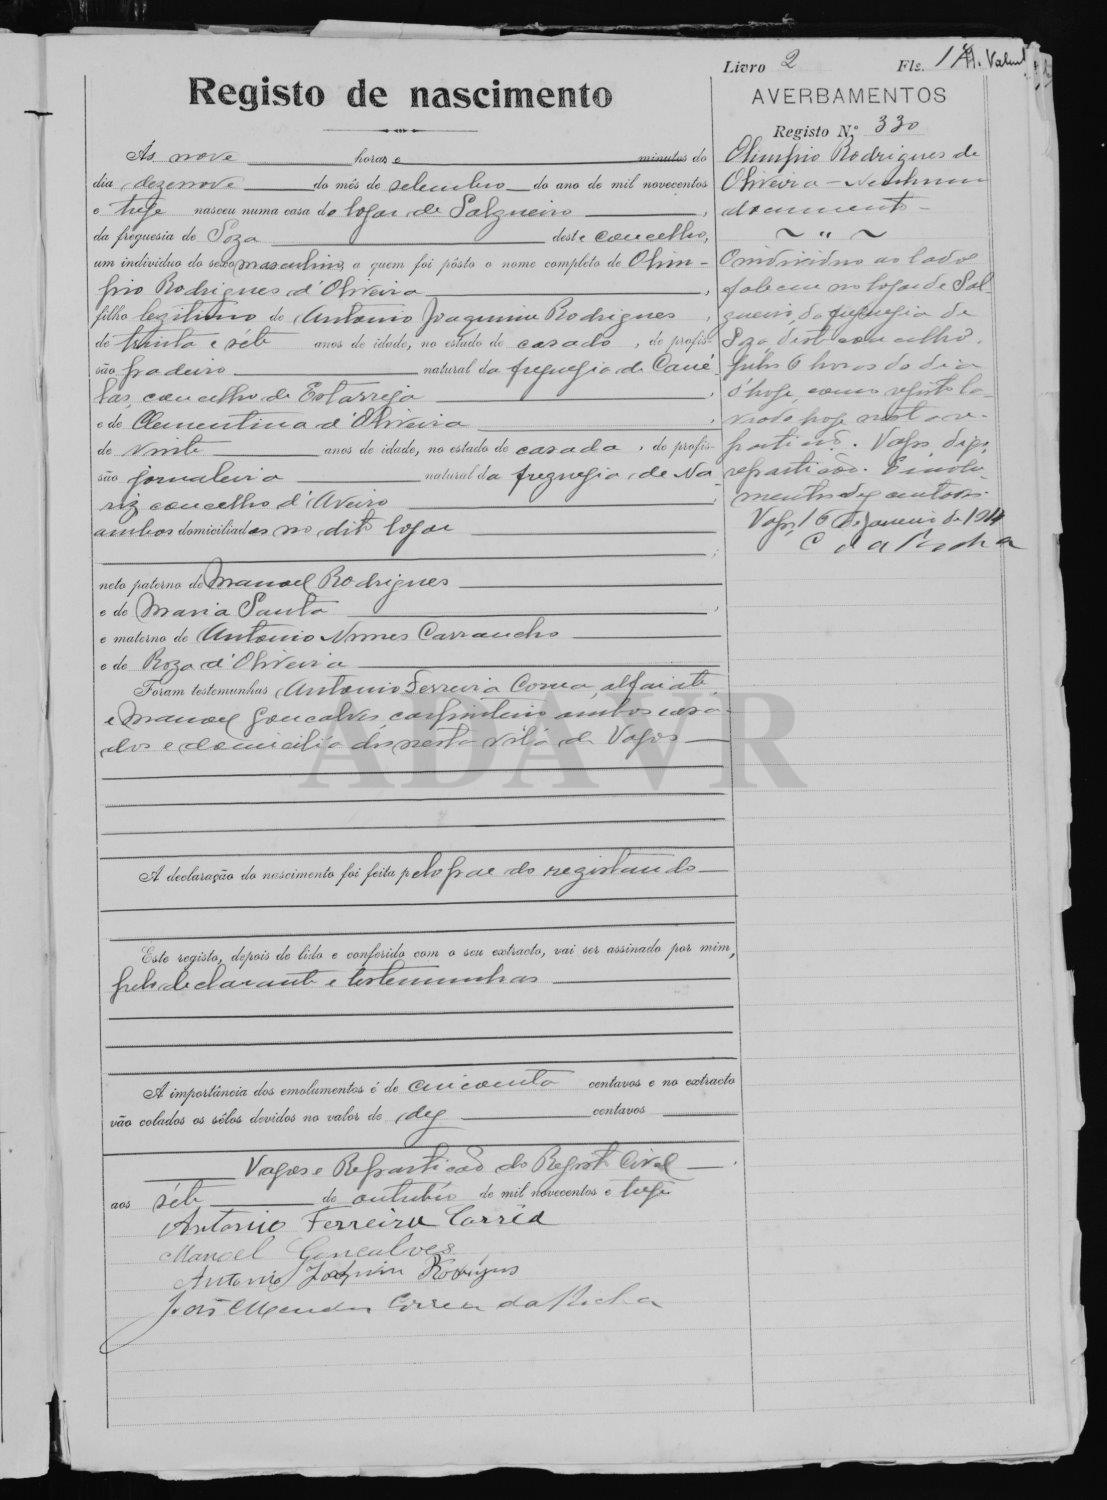 Livro 2 Fls. 1
Registo de nascimento
AVERBAMENTOS
Registo N.º 330
Ás nove horas e minutos do
dia dezenove do mês de setembro do ano de mil novecentos
e treze nasceu numa casa do logar de Salgueiro,
da freguesia de Soza deste concelho,
um individuo do sexo masculino, a quem foi pôsto o nome completo de Olim-
pio Rodrigues d'Oliveira,
filho legitimo de Antonio Joaquim Rodrigues,
de trinta e sete anos de idade, no estado de casado, de profis-
são padeiro natural da freguesia de Cané-
las, concelho de Estarreja
e de Clementina d'Oliveira,
de vinte anos de idade, no estado de casada, de profis-
são jornaleira natural da freguesia de Na-
riz, concelho d'Aveiro
ambos domiciliados no dito logar
neto paterno de Manoel Rodrigues
e de Maria Santa,
e materno de Antonio Nunes Carrancho
e de Roza d'Oliveira
Foram testemunhas Antonio Ferreira Correa, alfaiate,
e Manoel Goncalves, carpinteiro ambos casa-
dos e domiciliados nesta vila de Vagos
A declaração do nascimento foi feita pelo pae do registando
Este registo, depois de lido e conferido com o seu extracto, vai ser assinado por mim,
pelo declarante e testemunhas
A importância dos emolumentos é de cincoenta centavos e no extracto
vão colados os sêlos devidos no valor de dez centavos
Vagos e Repartição do Registo Civil
aos séte de outubro de mil novecentos e treze
Antonio Ferreira Corrêa
Manoel Goncalves
Antonio Joaquim Rodrigues
José Mendes Correa da Rocha
Olimpio Rodrigues de
Oliveira - Nenhum
documento -
~ " ~
O individuo ao lado
faleceu no logar de Sal
gueiro, da freguesia de
Soza, deste concelho,
pelas 6 horas do dia
d'hoje, como registo la-
vrado hoje nesta re-
partição. Vagos, digo,
repartição. Emolu-
mentos dez centavos.
Vagos, 16 de janeiro de 1914
C da Rocha
ADAVR